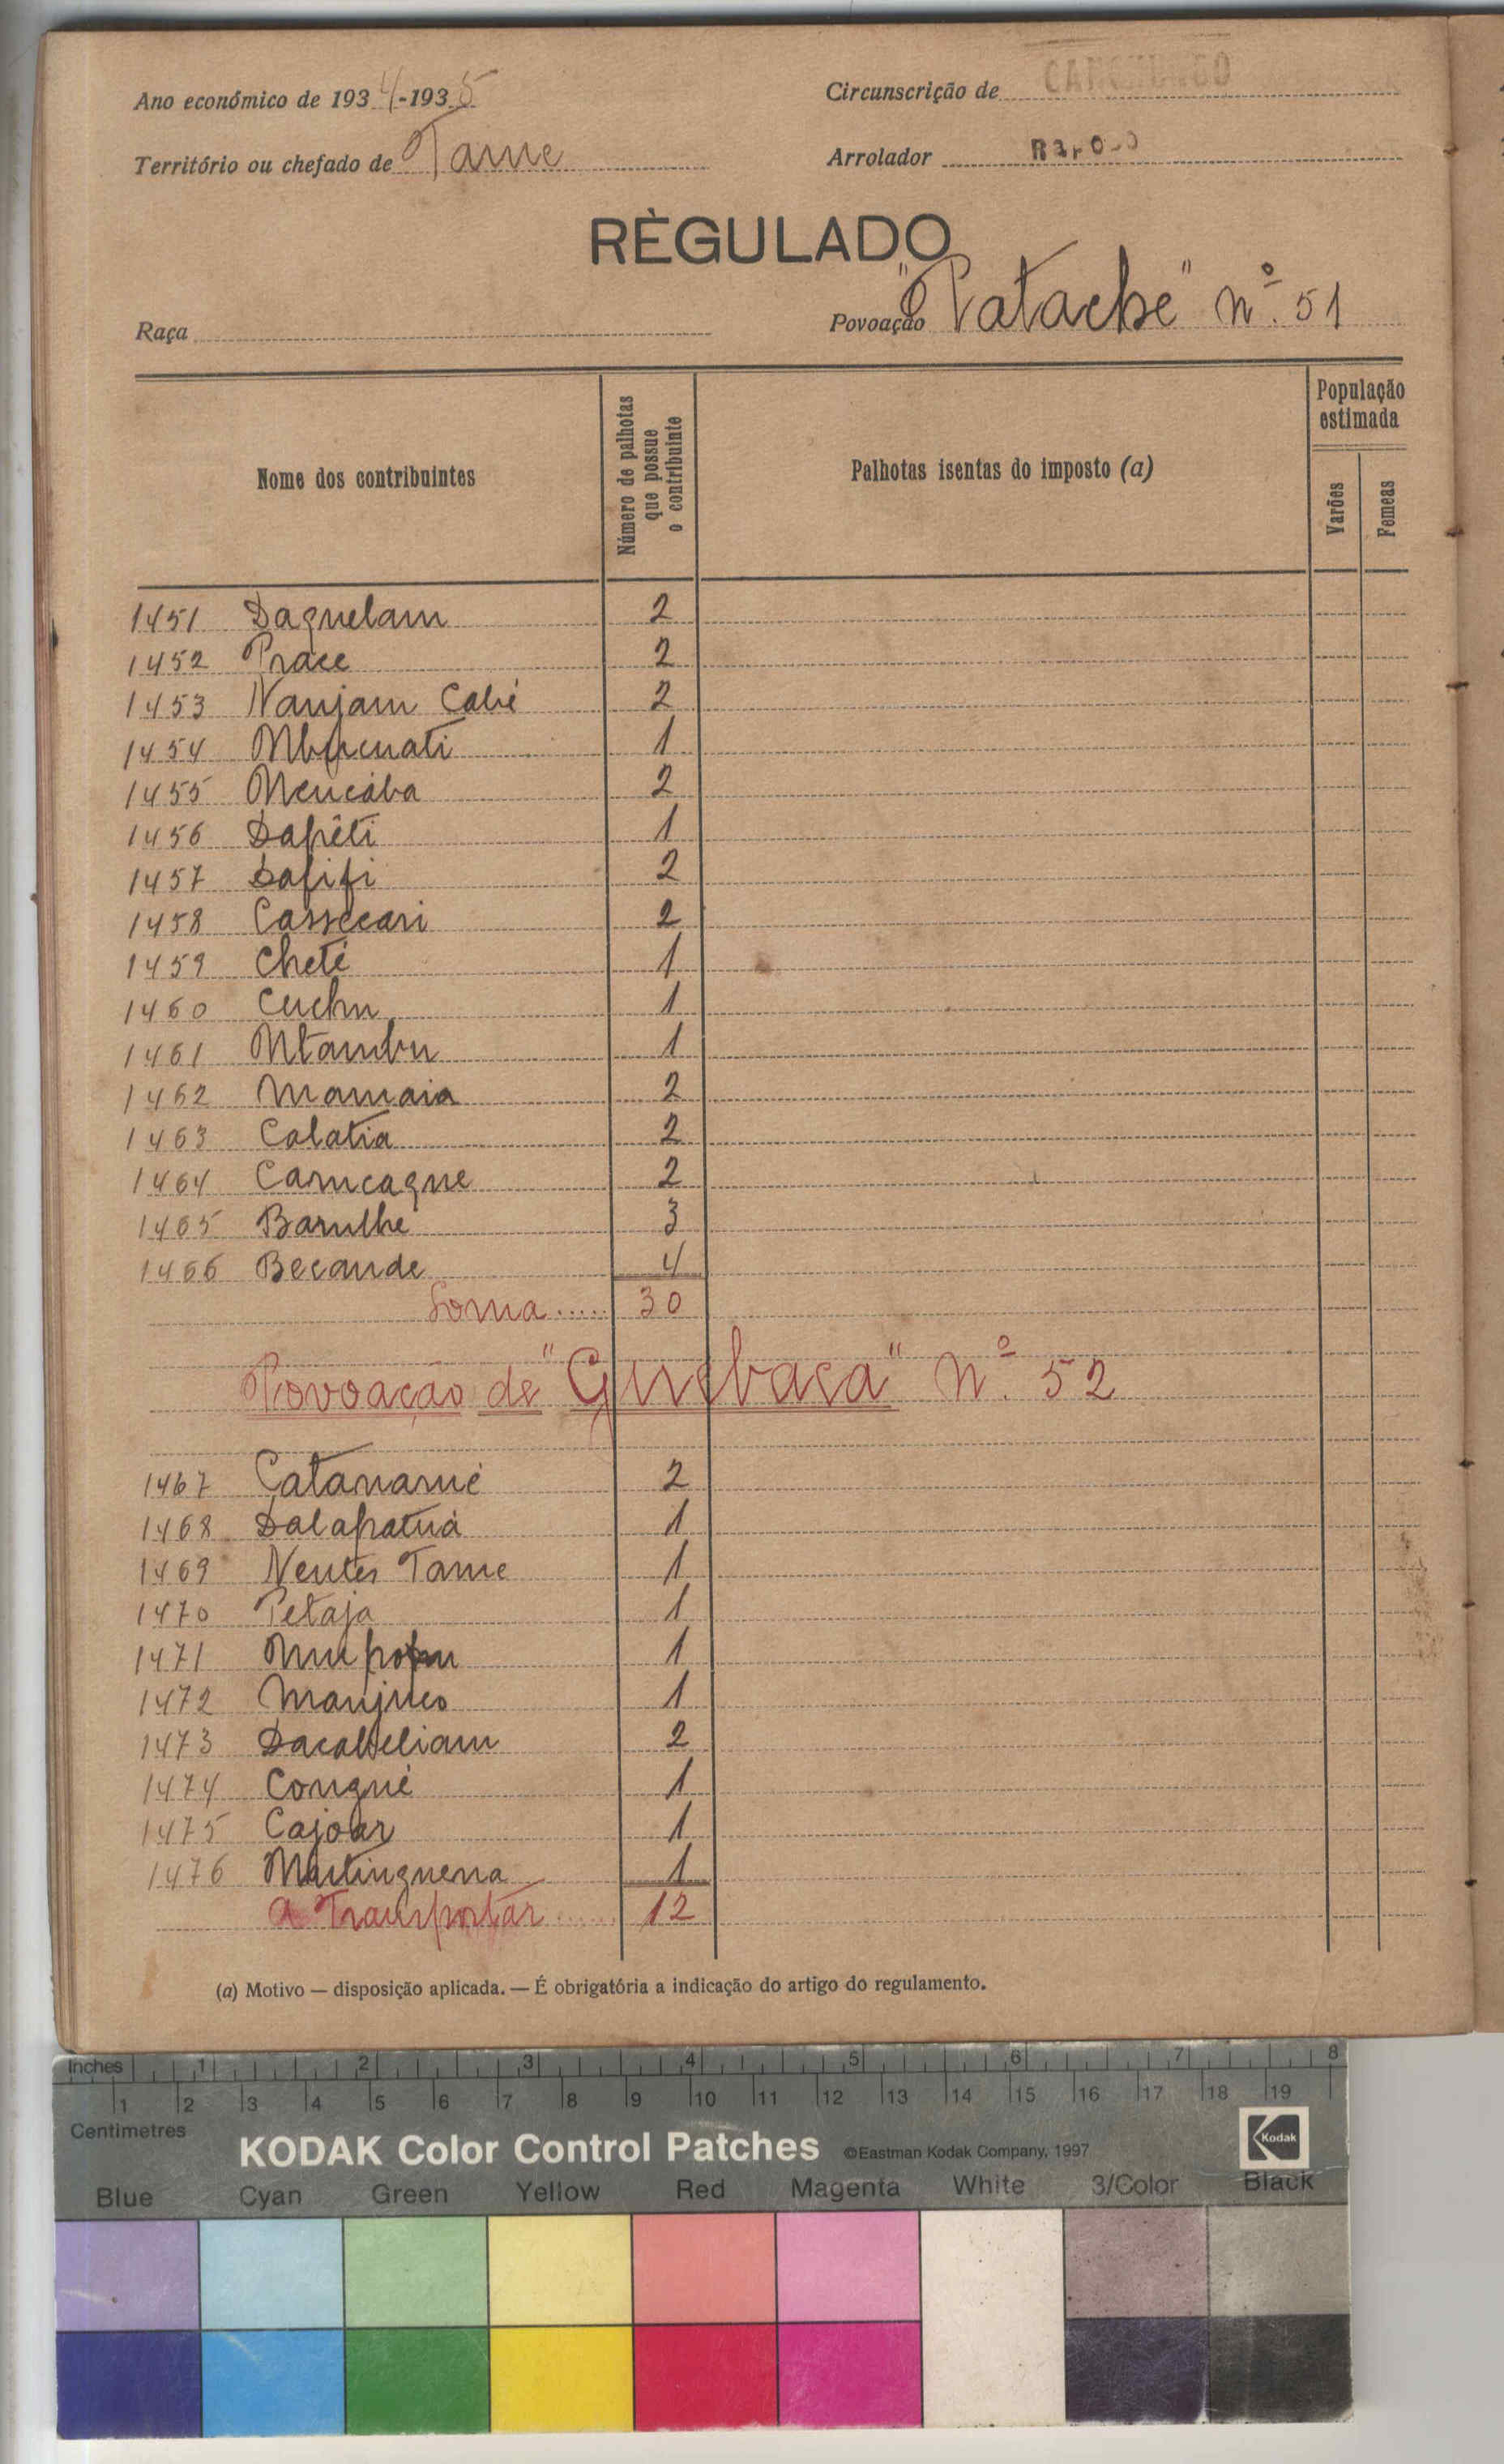 Ano económico de 1934-1935
Circunscrição de
Território ou chefado de Tame
Arrolador
RÈGULADO
Raça
Povoação "Patache" nº. 51
Nome dos contribuintes
Número de palhotas que possue o contribuinte
Palhotas isentas do imposto (a)
População estimada
Varões
Femeas
1451 Daguelam 2
1452 Prace 2
1453 Nanjam Cabé 2
1454 1
1455 Mencába 2
1456 Dapêti 1
1457 Dafifi 2
1458 Cassecari 2
1459 Cheté 1
1460 Cuchu 1
1461 Mtambu 1
1462 Mamaia 2
1463 Calatia 2
1464 Carucague 2
1465 Barulhe 3
1466 Becande 4
Soma ..... 30
Povoação de " " Nº. 52
1467 Catanamé 2
1468 Dalapatuá 1
1469 Neutes Tame 1
1470 Petaja 1
1471 1
1472 Manjuco 1
1473 Dacabeliam 2
1474 Congué 1
1475 Cajoar 1
1476 1
A Transportar ..... 12
(a) Motivo — disposição aplicada. — É obrigatória a indicação do artigo do regulamento.
Inches 1 2 3 4 5 6 7 8
1 2 3 4 5 6 7 8 9 10 11 12 13 14 15 16 17 18 19
Centimetres
KODAK Color Control Patches ©Eastman Kodak Company, 1997 Kodak
Blue Cyan Green Yellow Red Magenta White 3/Color Black